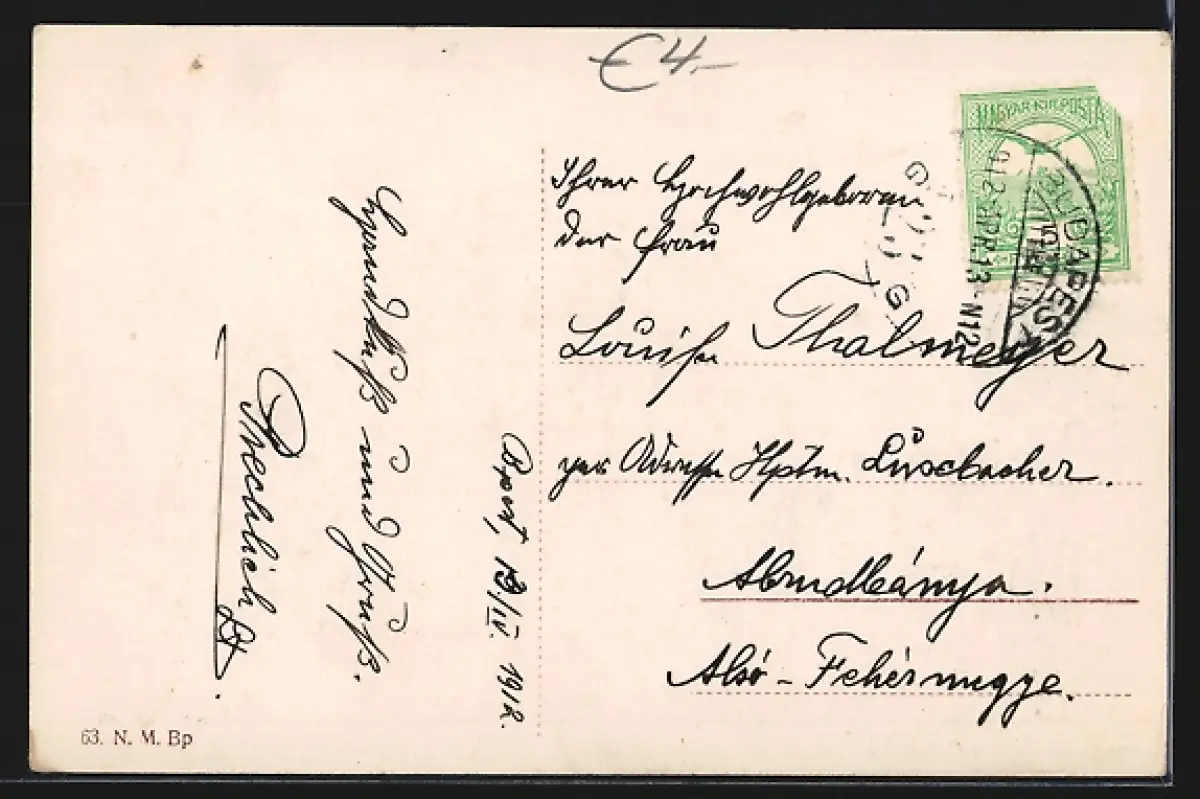 €4.-
MAGYAR KIR. POSTA
BUDAPEST
912 APR. 13 - N12
Ihrer Hochwohlgeboren
der Frau
Louise Thalmeyer
per Adresse Hptm.
Abrudbánya.
Alsó-Fehérmegye.
Bpest, 13/IV. 1912.
Handkuß und Gruß.
63. N. M. Bp